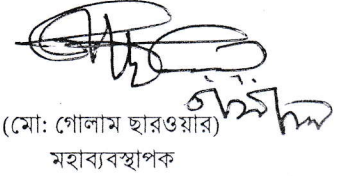 (মো: গোলাম ছারওয়ার)
মহাব্যবস্থাপক